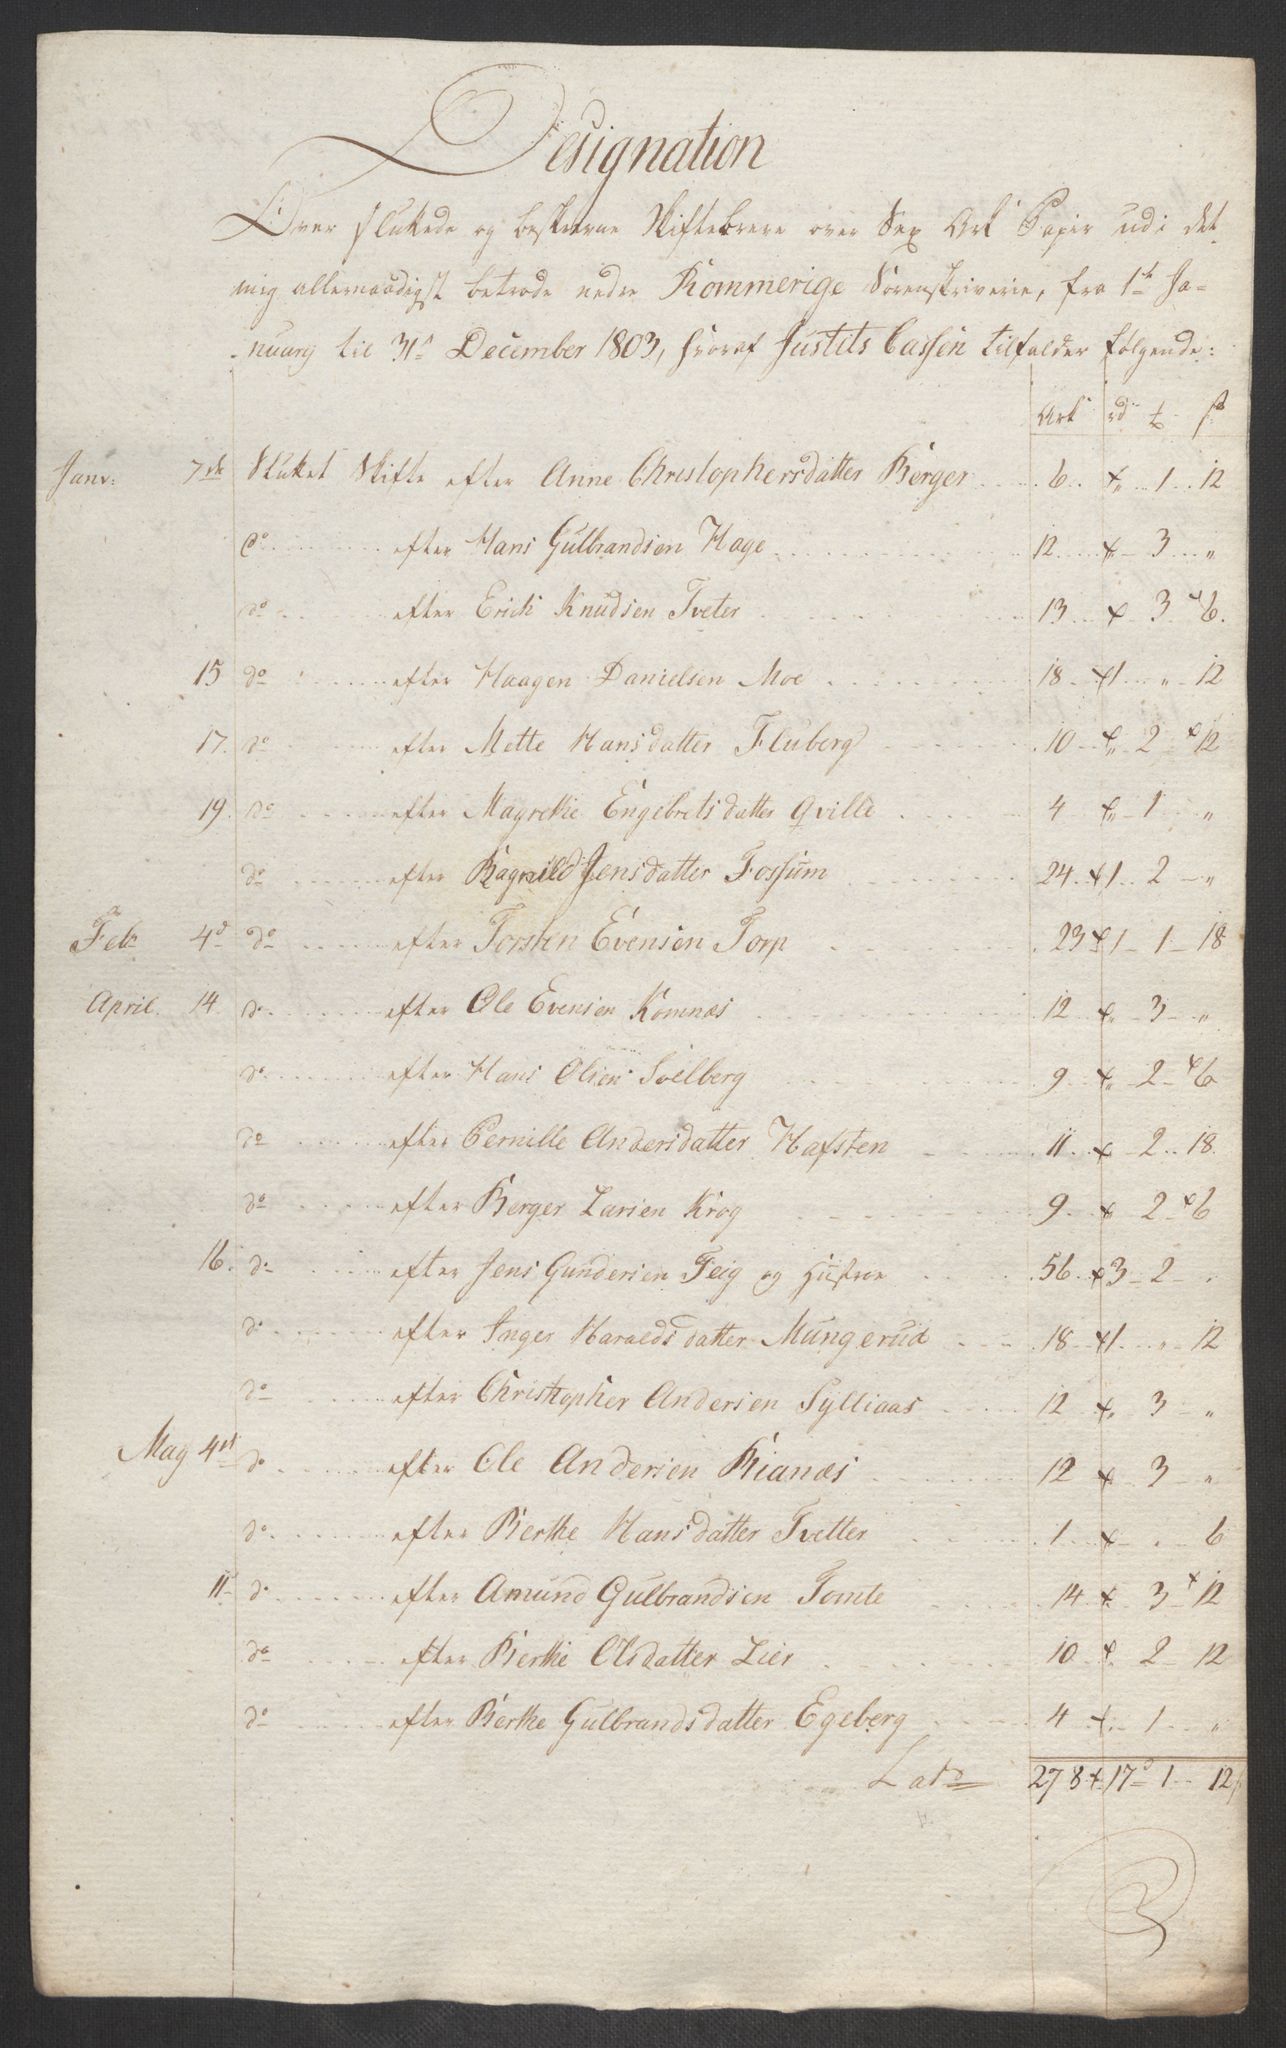 Designation
Over sluttede og beskrevne Skiftebreve over Sex Ark Papir udi det
mig allernaadigst betroede nedre Rommerige Sorenskriverie, fra 1te Ja-
nuarij til 31te December 1803, hvoraf Justits Cassen tilfalder følgende:
Ark rd ß
Janv: 7de Sluttet Skifte efter Anne Christophersdatter Berger 6 „ 1 12
do efter Hans Gulbrandsen Hage 12 „ 3 „
do efter Erich Knudsen Tveter 13 3 6
15 do efter Haagen Danielsen Moe 18 1 „ 12
17 do efter Mette Hansdatter Fluberg 10 „ 2 12
19 do efter Magrethe Engebretsdatter Qville 4 „ 1 „
do efter Ragnild Jensdatter Fossum 24 1 2 „
Feb 4d do efter Torsten Evensen Torp 23 1 1 18
April 14 do efter Ole Evensen Komnæs 12 „ 3 „
do efter Hans Olsen Solberg 9 „ 2 6
do efter Pernille Andersdatter Hafsten 11 2 18
do efter Berger Larsen Krog 9 2 6
16 do efter Jens Gundersen Teig og Hustroe 56 3 2 „
do efter Inger Haraldsdatter Mungerud 18 1 „ 12
do efter Christopher Andersen Sylliaas 12 „ 3 „
May 4de do efter Ole Andersen Rianæs 12 3 „
do efter Berthe Hansdatter Tvetter 1 „ 6
11 do efter Amund Gulbrandsen Tomte 14 3 12
do efter Berthe Olsdatter Lier 10 2 12
do efter Berthe Gulbrandsdatter Egeberg 4 1 „
Lat 278 17 1 12